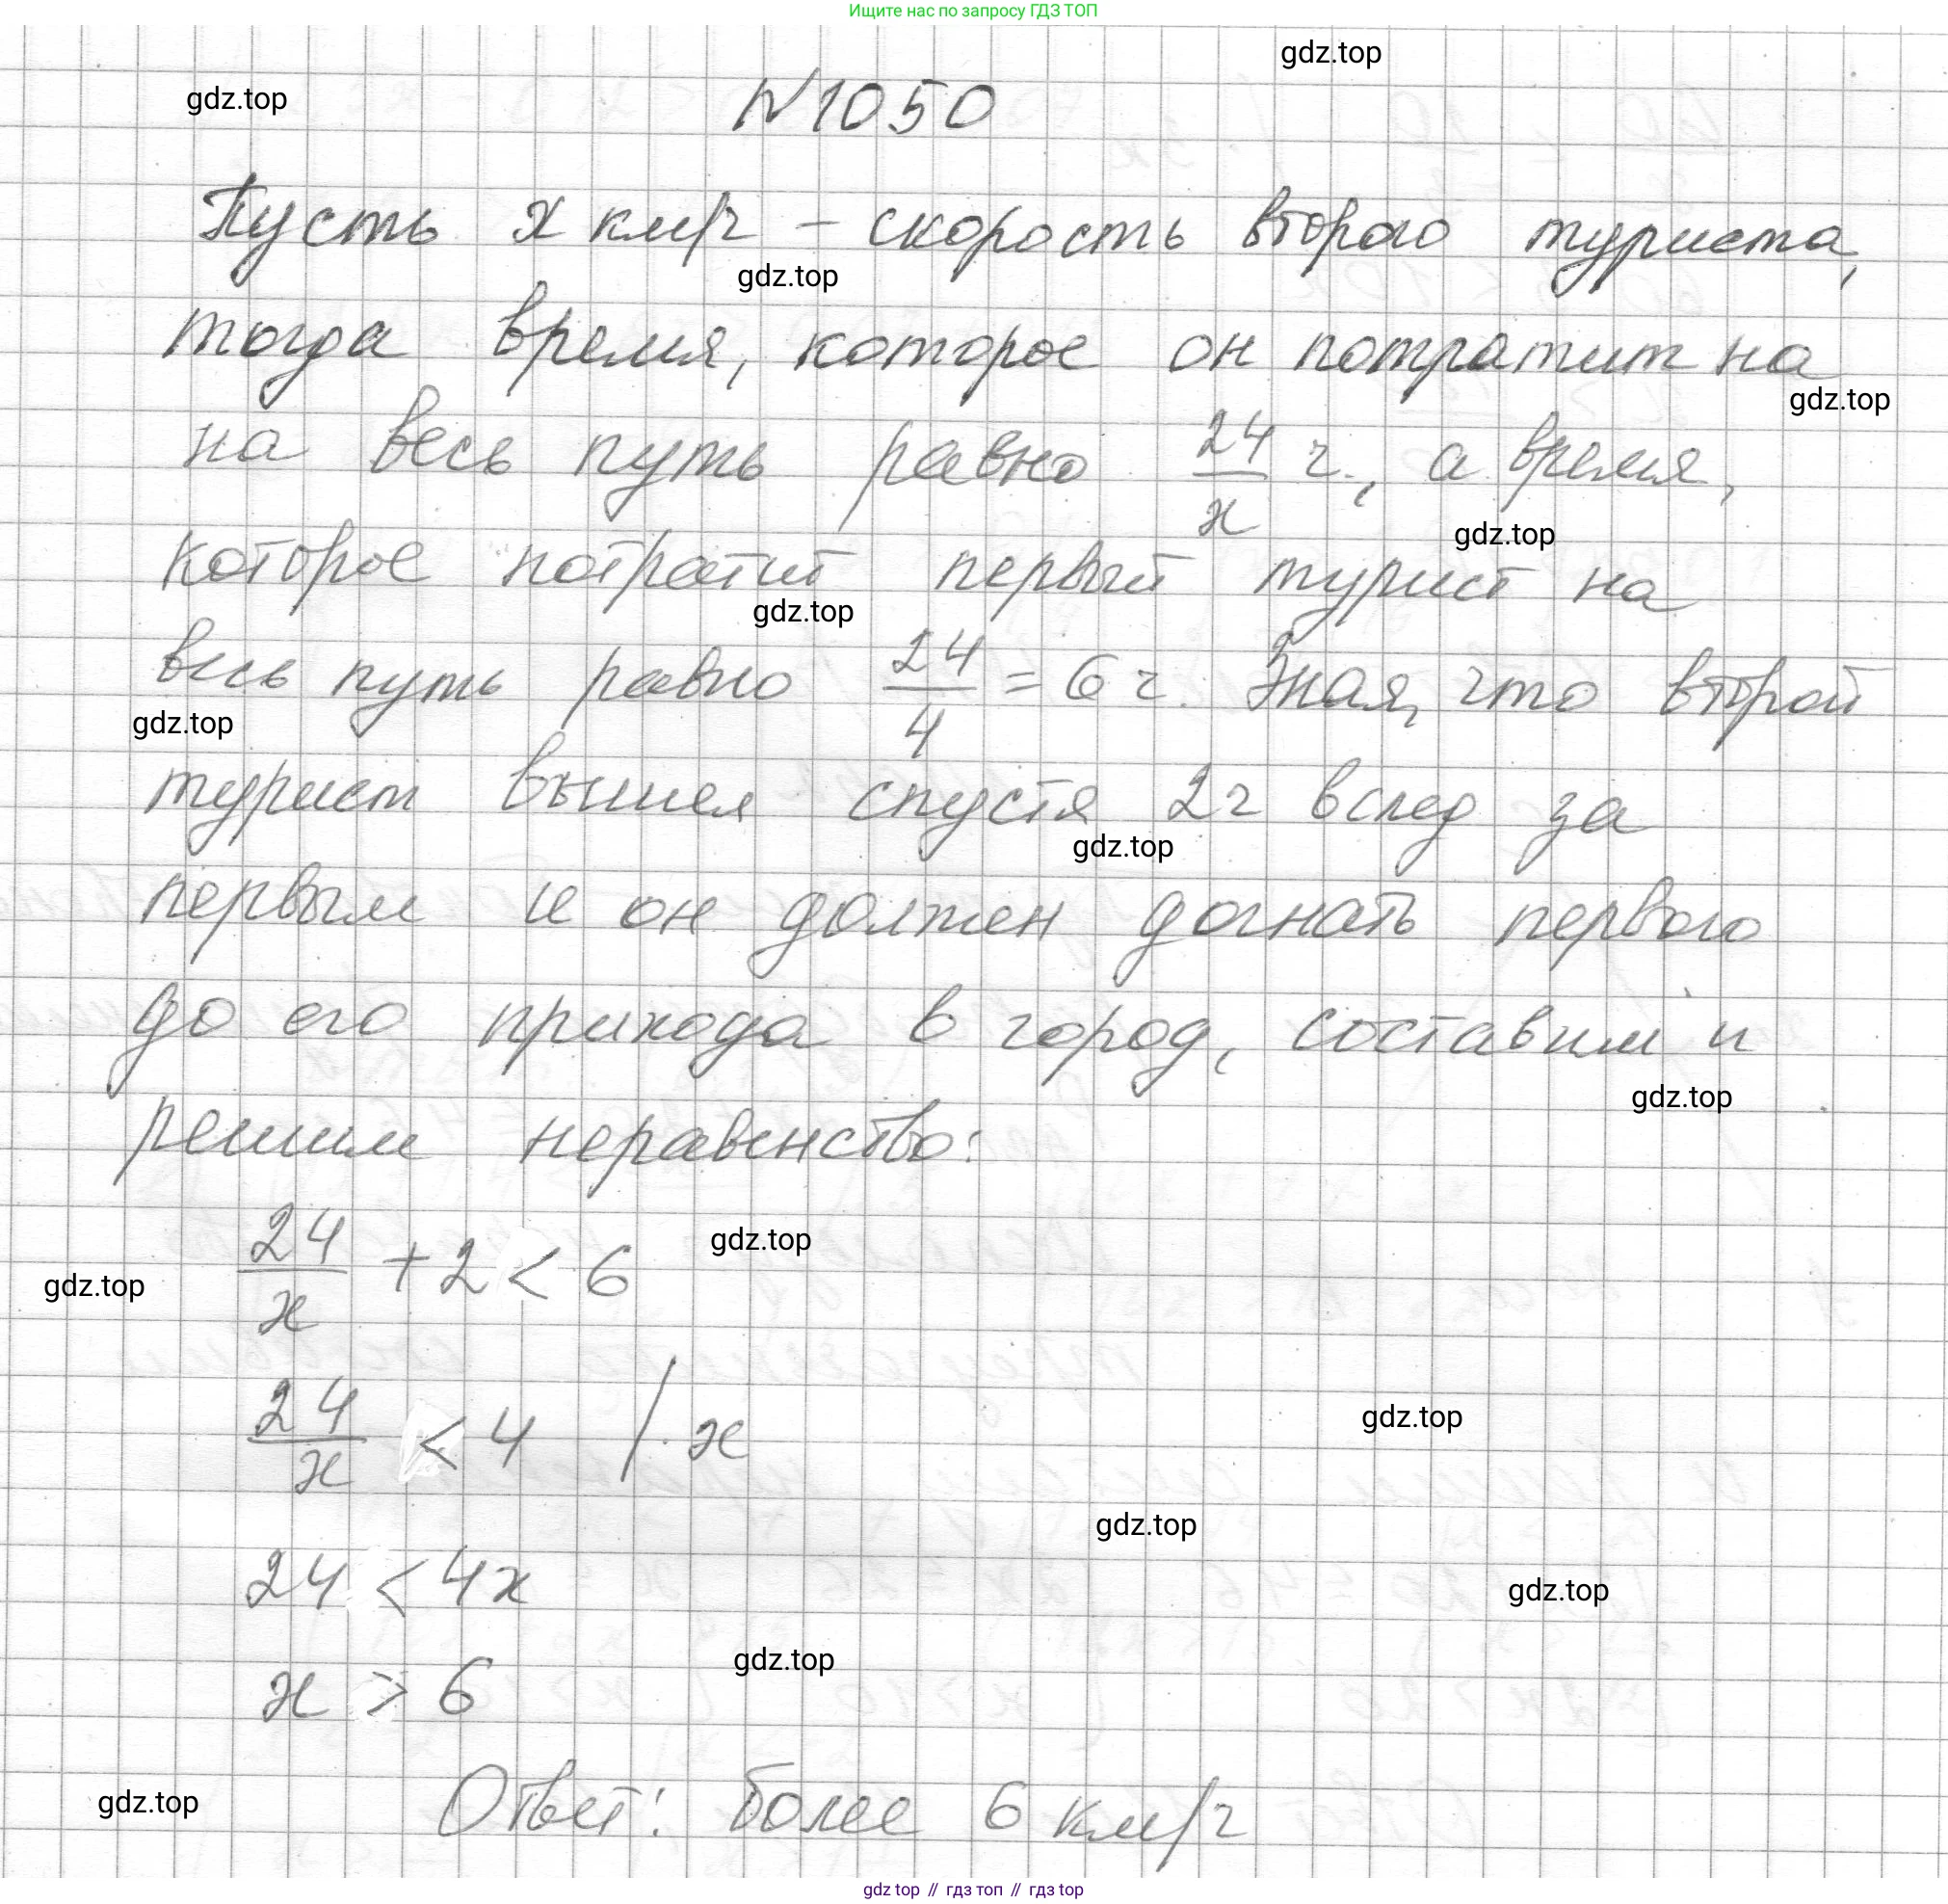 Ищите нас по запросу ГДЗ ТОП
gdz.top
gdz.top
№1050
Пусть x км/ч – скорость второго туриста,
gdz.top
тогда время, которое он потратит на
gdz.top
на весь путь равно 24/x ч., а время,
gdz.top
которое потратит первый турист на
gdz.top
весь путь равно 24/4 = 6 ч. Зная, что второй
gdz.top
турист вышел спустя 2ч вслед за
gdz.top
первым и он должен догнать первого
до его прихода в город, составим и
gdz.top
решим неравенство:
24/x + 2 < 6
gdz.top
gdz.top
24/x < 4 / · x
gdz.top
gdz.top
24 < 4x
gdz.top
x > 6
gdz.top
Ответ: более 6 км/ч
gdz.top
gdz top // гдз топ // гдз top